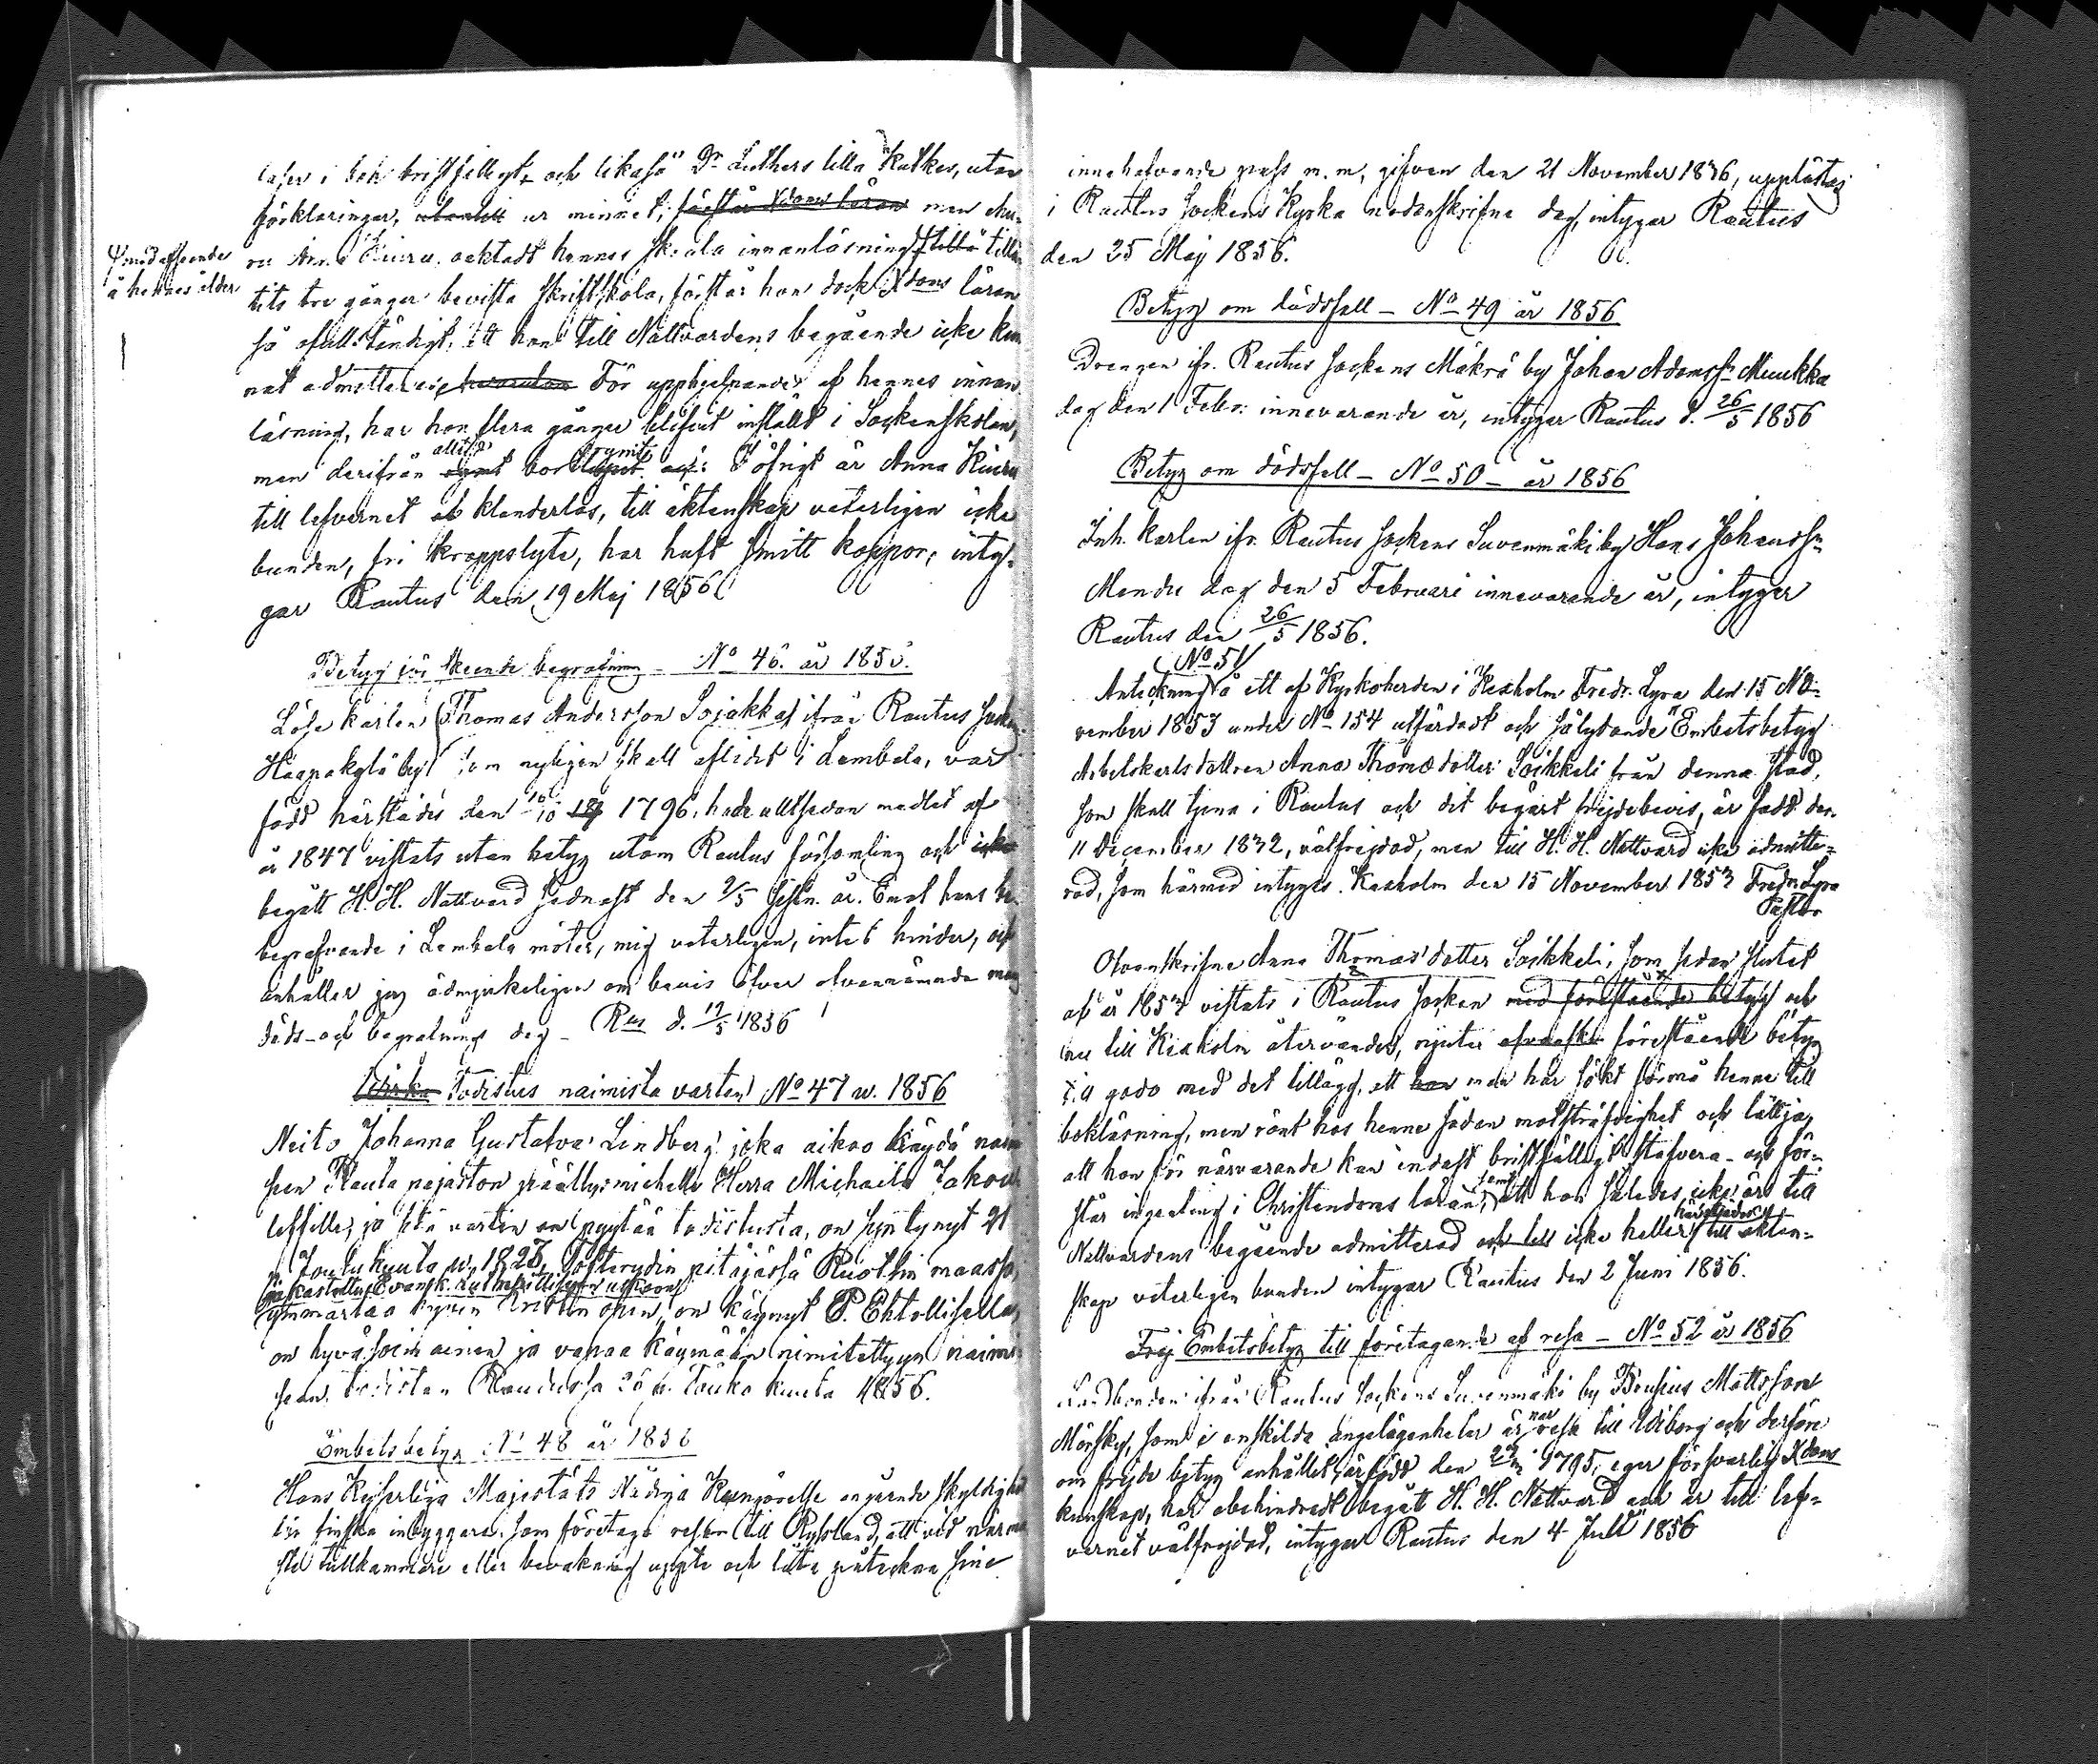 läser i bok bristfälligt och likaså Dr Luthers lilla Katkes, utan
förklaringar, utantill ur minnet; förstår Xdoms läran men ehu-
ru Anna Kiuru, oaktadt hennes skrala innanläsning tillå tillå-
Ψ med afseende
å hennes ålder
tits tre gånger bevista skriftskola, förstår hon dock Xdoms läran
så ofullständigt, att hon till Nattvardens begående icke kun-
nat admitteras. För upphjelpandet af hennes innan-
läsning, har hon flera gånger blifvit inställd i Sockenskolan,
men derifrån alltid bortrymt. I öfrigt är Anna Kiuru
till lefvernet oklanderlös, till äktenskap veterligen icke
bunden, fri kroppslyte, har haft smitt koppor, inty-
gar Rautus den 19 Maj 1856
Betyg för skeende begrafning - No 46. år 1856.
Löse karlen Thomas Andersson Sojakka ifrån Rautus Socken
Haapakylä by som nyligen skall aflidit i Lembala, var
född härstädes den 10/10 1796, hade alltsedan medlet af
år 1847 vistats utan betyg utom Rautus församling och icke
begått H. H. Nattvard sednast den 2/5 sistn. år. Emot hans be-
begrafvande i Lembala möter, mig veterligen, intet hinder, och
anhåller jag ödmjukeligen om bevis öfver ofvannämnde mans
döds- och begrafnings dag - Rus d. 17/5 1856
Todistus naimista varten No 47 w. 1856
Neito Johanna Gustafva Lindberg joka aikoo käydä naimi-
seen Rauta pajaston päällysmiehelle Herra Michaila Jakow-
leffille, ja sitä varten on pyytää todistusta, on syntynyt 21
p Joulukuuta w. 1827, Pitäjässä Ruottin maassa,
ja kastettu Evank. Lutherillisehen uskoon
ymmärtää hyvin Kristin opin, on käynyt P. Ehtollisella
on hyvä soimainen ja vapaa käymään nimitettyyn naimi-
seen, todistan Raudussa 26 p. Touko kuuta 1856.
Embetsbetyg No 48 år 1856
Hans Kejserliga Majestäts Nådiga Kungörelse angående skyldighet
för finska inbyggare, som företaga resor till Ryssland, att vid närma-
ste tullkammare eller bevakning uppte och låta påteckna sine
innehafvande pass m. m, gifven den 21 November 1836, upplästes
i Rautus Sockens Kyrka nedanskrifne dag, intygar Rautus
den 25 Maj 1856.
Betyg om dödsfall - No 49 år 1856
Drengen ifr. Rautus Sockens Mäkrä by Johan Adamss. Muukka
dog den 1 Febr. innevarande år, intygar Rautus d. 26/5 1856
Betyg om dödsfall - No 50 - år 1856
Inh. karlen ifr. Rautus Sockens Suvenmäki by Hans Johanss.
Mondu dog den 5 Februari innevarande år, intygar
Rautus den 26/5 1856.
No 51
Anteckning å ett af Kyrkoherden i Kexholm Fredr. Lyra den 15 No-
vember 1853 under No 154 utfärdadt och sålydande "Embetsbetyg
Arbetskarlsdottren Anna Thomædotter Soikkeli från denna stad,
som skall tjena i Rautus och dit begärt frejdebevis, är född den
11 December 1832, välfrejdad, men till H. H. Nattvard icke admitte-
rad, som härmed intygas. Kexholm den 15 November 1853 Fredr. Lyra
Pastor
Ofvanskrifne Anna Thomas dotter Soikkeli, som sedan slutet
af år 1853 vistats i Rautus Socken med förestående betyg och
nu till Kexholm återvänder, njuter förestående betyg
till godo med det tillägg, att man har sökt förmå henne till
bokläsning, men rönt hos henne sådan motsträfvighet och lättja,
att hon för närvarande kan endast bristfälligt stafvera - och för-
står ingenting i Christendoms läran, samt att hon således icke är till
Nattvardens begående admitterad och icke heller härstädes till äkten-
skap veterligen bunden intygar Rautus den 2 Juni 1856.
Frej Embetsbetyg till företagande af resa - No 52 år 1856
Landbonden ifrån Rautus Sockens Suvenmäki by Mattsson
Mönsky, som i enskilda angelägenheter är resa till Wiborg och derföre
om frejde betyg anhållit, är född den 1795, eger försvarlig Xdoms
kunskap, har obehindradt begått H. H. Nattvard och är till lef-
vernet välfrejdad, intygar Rautus den 4 Juli 1856